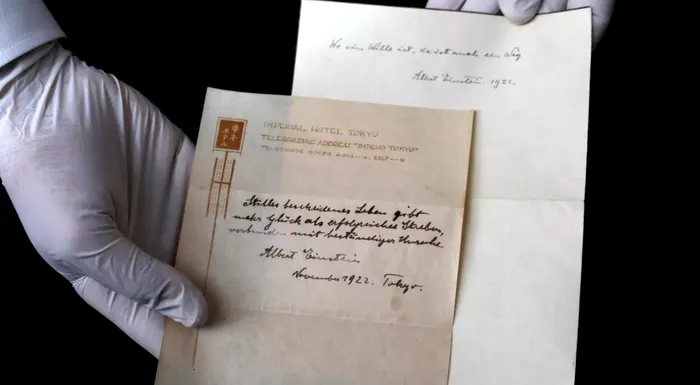 Wo ein Wille ist, da ist auch ein Weg
Albert Einstein. 1922.
IMPERIAL HOTEL TOKYO
TELEGRAPHIC ADDRESS "IMPEHO TOKYO"
Stilles bescheidenes Leben gibt
mehr Glück als erfolgreiches Streben,
verbunden mit beständiger Unruhe.
Albert Einstein
November 1922. Tokyo.